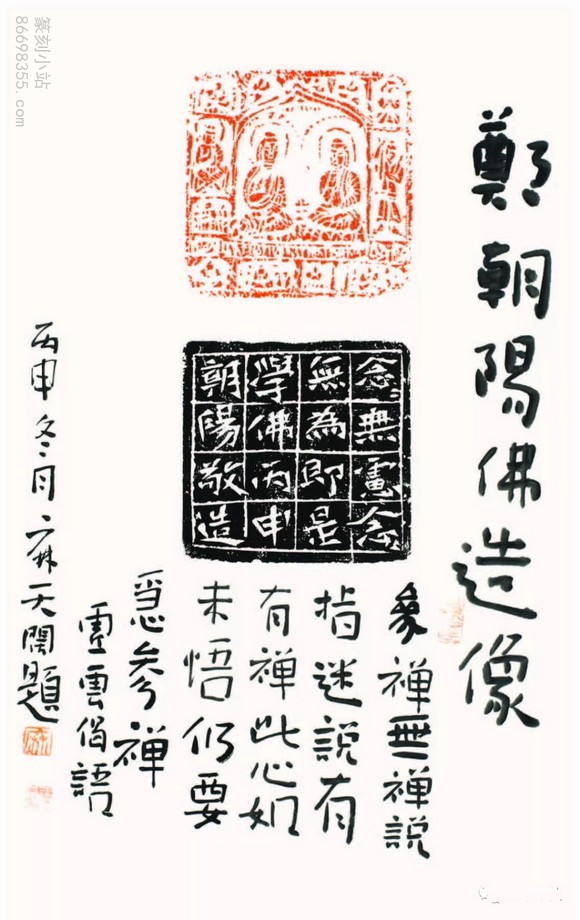 鄭朝陽佛造像
念無慮念
無為即是
學佛丙申
朝陽敬造
象禪無禪說
指迷說有
有禪此心如
未悟仍要
急參禪
虛雲偈語
丙申冬月麻天闊題
篆刻小站
86698355.com